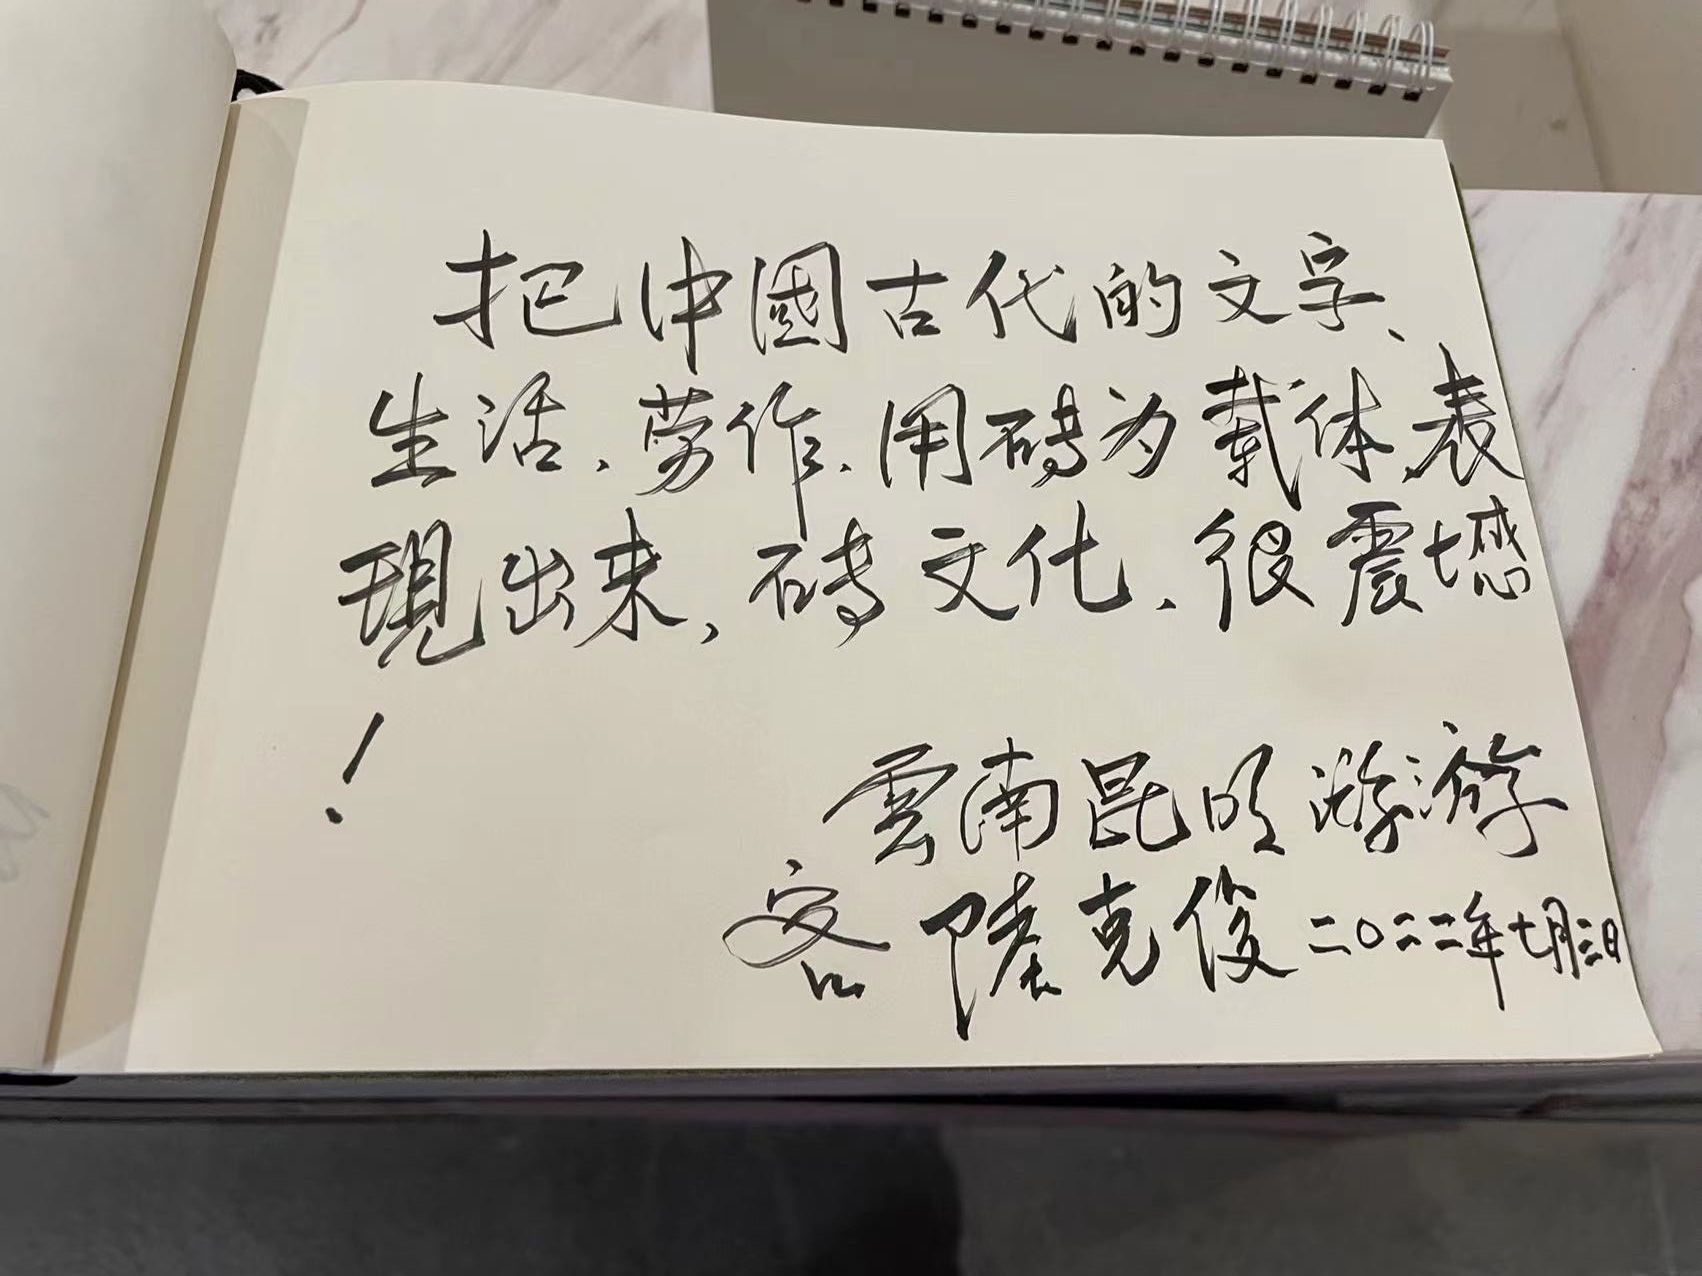 把中國古代的文字、
生活、劳作、用砖为载体,表
現出来,砖文化、很震撼
!
雲南昆明游游
客 陸克俊 二〇二二年七月三日